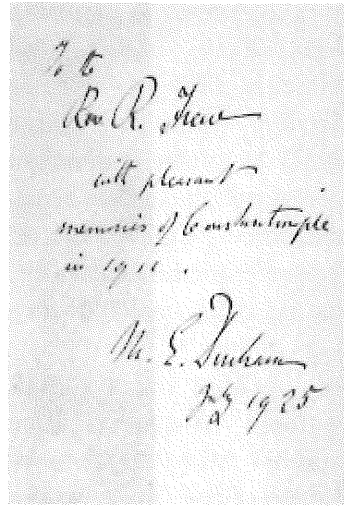 To the
Rev R. Frew
with pleasant
memories of Constantinople
in 1911.
M. E. Durham
July 1925